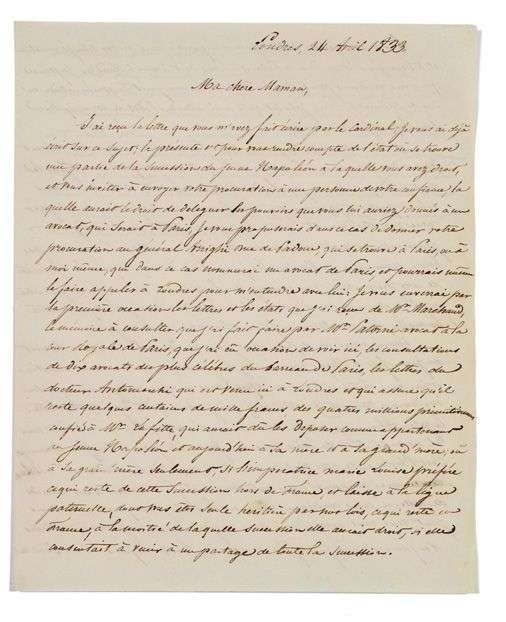 Londres, 24 Avril 1833
Ma chere Maman,
J'ai reçu la lettre que vous m'avez fait écrire par le Cardinal. Je vous ai déjà
écrit sur ce sujet; la presente est pour vous rendre compte de l'état où se trouve
une partie de la Succession du jeune Napoléon à laquelle vous avez droit,
et vous inviter à envoyer votre procuration à une personne de votre confiance la
quelle aurait le droit de deleguer les pouvoirs que vous lui auriez donnés à un
avocat, qui serait à Paris, je vous proposerais dans ce cas de donner votre
procuration au général Arrighi duc de Padoue qui se trouve à Paris, ou à
moi même, qui dans ce cas nommerai un avocat de Paris et pourrais même
le faire appeler à Londres pour m'entendre avec lui; Je vous enverrai par
la première occasion les lettres et les états que j'ai reçus de Mr. Marchand,
le memoire à consulter que j'ai fait faire par Mr. Patorni avocat à la
cour Royale de Paris, que j'ai eu occasion de voir ici, les consultations
de dix avocats des plus célèbres du barreau de Paris, les lettres du
docteur Antommarchi qui est venu ici à Londres et qui assure qu'il
reste quelques centaines de mille francs des quatres millions primitifs
confiés à Mr. Lafitte, qui aurait dû les deposer comme appartenant
au jeune Napoléon et aujourd'hui à sa mère et à sa grand'mère, ou
à sa grand'mère seulement si l'imperatrice marie Louise préfère
ce qui reste de cette Succession hors de France et laisse à la ligne
paternelle, dont vous êtes seule heritière par nos lois, ce qui reste en
France, à la moitié de laquelle succession elle aurait droit, si elle
consentait à venir à un partage de toute la succession.